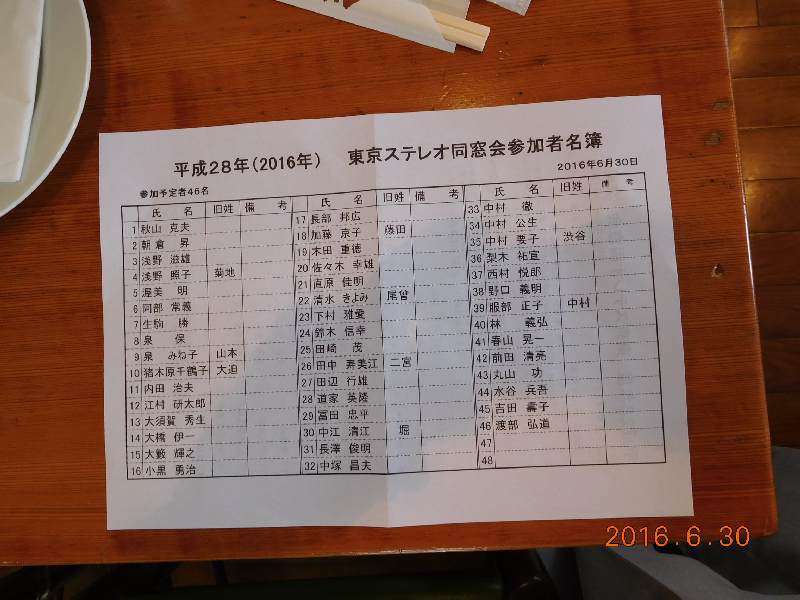 平成28年(2016年)　東京ステレオ同窓会参加者名簿
2016年6月30日
参加予定者46名
氏　名 旧姓 備　考
1 秋山 克夫
2 朝倉 昇
3 浅野 滋雄
4 浅野 照子 菊地
5 渥美 明
6 阿部 常義
7 生駒 勝
8 泉 保
9 泉 みね子 山本
10 猪木原千鶴子 大迫
11 内田 治夫
12 江村 研太郎
13 大須賀 秀生
14 大橋 伊一
15 大籔 輝之
16 小黒 勇治
氏　名 旧姓 備　考
17 長部 邦広
18 加藤 京子 藤田
19 木田 重徳
20 佐々木 幸雄
21 直原 佳明
22 清水 きよみ 尾曽
23 下村 雅愛
24 鈴木 信幸
25 田崎 茂
26 田中 寿美江 二宮
27 田辺 行雄
28 道家 英隆
29 冨田 忠平
30 中江 清江 堀
31 長澤 俊明
32 中塚 昌夫
氏　名 旧姓 備　考
33 中村 徹
34 中村 公生
35 中村 要子 渋谷
36 梨木 祐宣
37 西村 悦郎
38 野口 義明
39 服部 正子 中村
40 林 義弘
41 春山 晃一
42 前田 清亮
43 丸山 功
44 水谷 兵吾
45 吉田 壽子
46 渡部 弘道
47
48
2016. 6. 30